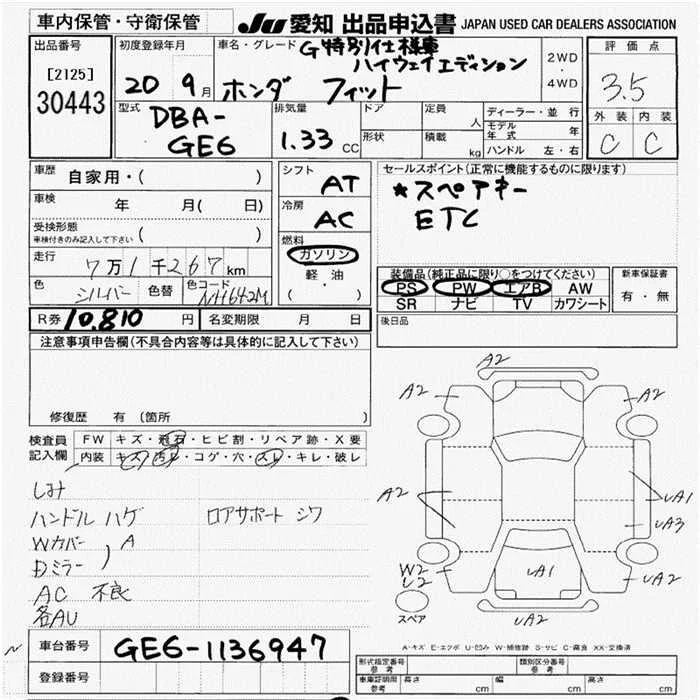 車内保管・守衛保管
JU 愛知 出品申込書 JAPAN USED CAR DEALERS ASSOCIATION
出品番号
[2125]
30443
初度登録年月
20 9月
車名・グレード
G特別仕様車
ハイウェイエディション
ホンダ フィット
2WD
・
4WD
評価点
3.5
外装 内装
C C
型式
DBA-
GE6
排気量
1.33 CC
ドア
定員
人
形状
積載
kg
ディーラー・並行
モデル年式 年
ハンドル 左・右
車歴
自家用・( )
車検
年 月( 日)
受検形態
車検付きのみ記入して下さい ( )
走行
7万1千267km
色
シルバー
色替
色コード
NH642M
シフト
AT
冷房
AC
燃料
ガソリン
軽・油
( ・ )
セールスポイント(正常に機能するものに限ります)
*スペアキー
ETC
装備品(純正品に限り○をつけてください)
PS PW エアB AW
SR ナビ TV カワシート
新車保証書
有・無
R券 10,810 円
名変期限 月 日
後日品
注意事項申告欄(不具合内容等は具体的に記入して下さい)
修復歴 有(箇所 )
検査員
記入欄
FW キズ・飛石・ヒビ割・リペア跡・X要
内装 キズ・汚レ・コゲ・穴・スレ・キレ・破レ
しみ
ハンドル ハゲ ロアサポート シワ
Wカバー
Dミラー ) A
AC 不良
各AU
A2
A2
A2
A2
UA1
UA3
W2
U2
UA1
UA2
UA2
スペア
A-キズ E-エクボ U-凹み W-補修跡 S-サビ C-腐食 XX-交換済
車台番号
GE6-1136947
登録番号
形式指定番号
参考
類別区分番号
参考
車庫証明用
参考
高さ cm
幅 cm
長さ cm